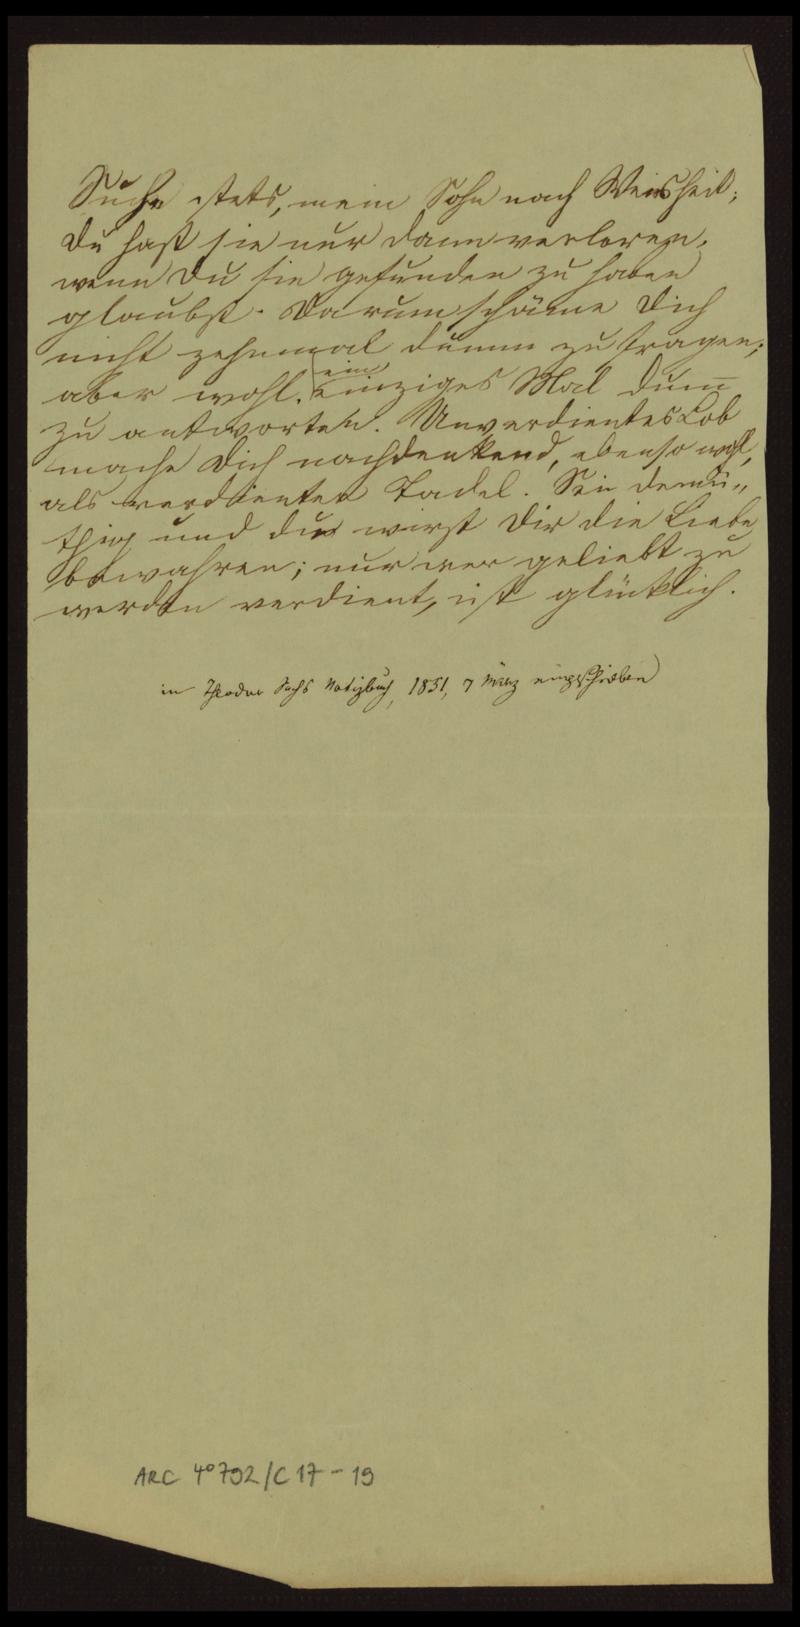 Suche stets, mein Sohn nach Weisheit;
du hast sie nur dann verloren,
wenn Du sie gefunden zu haben
glaubst. Darum schäme Dich
nicht zehnmal dumm zu fragen;
aber wohl, ein
einziges Mal dum̅
zu antworten. Unverdientes Lob
mache Dich nachdenkend, ebenso wohl,
als verdienter Tadel. Sei demü„
thig und du wirst Dir die Liebe
bewahren; nur wer geliebt zu
werden verdient, ist glücklich.
in Theodor Sachs Notizbuch, 1851, 7 März eingeschrieben
ARC 4° 792/C 17-19